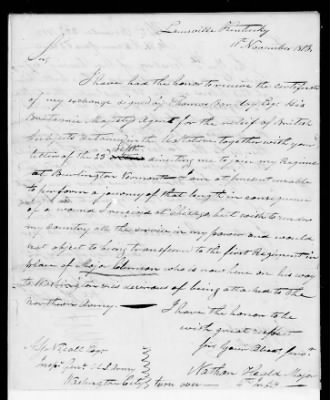 Louisville Kentucky
11th November 1813
Sir,
I have had the honor to receive the certificate
of my exchange signed by Thomas Barclay Esqr His
Britannic Majesty's Agent for the relief of British
subjects &c in the United States together with your
letter of the 23 Septr directing me to join my Regiment
at Burlington Vermont I am at present unable
to perform a journey of that length in consequence
of a wound I received at Chicago but wish to render
my country all the service in my power and would
not object to being transferred to the first Regiment in
place of Major Johnson who is now here on his way
to Washington and is desirous of being attached to the
northern Army.
I have the honor to be
with great respect
Sir Your Obedt Servt
Nathan Heald Major
4th Infy
A. Y. Nicoll Esqr
Inspr Genl U S Army
Washington City
turn over